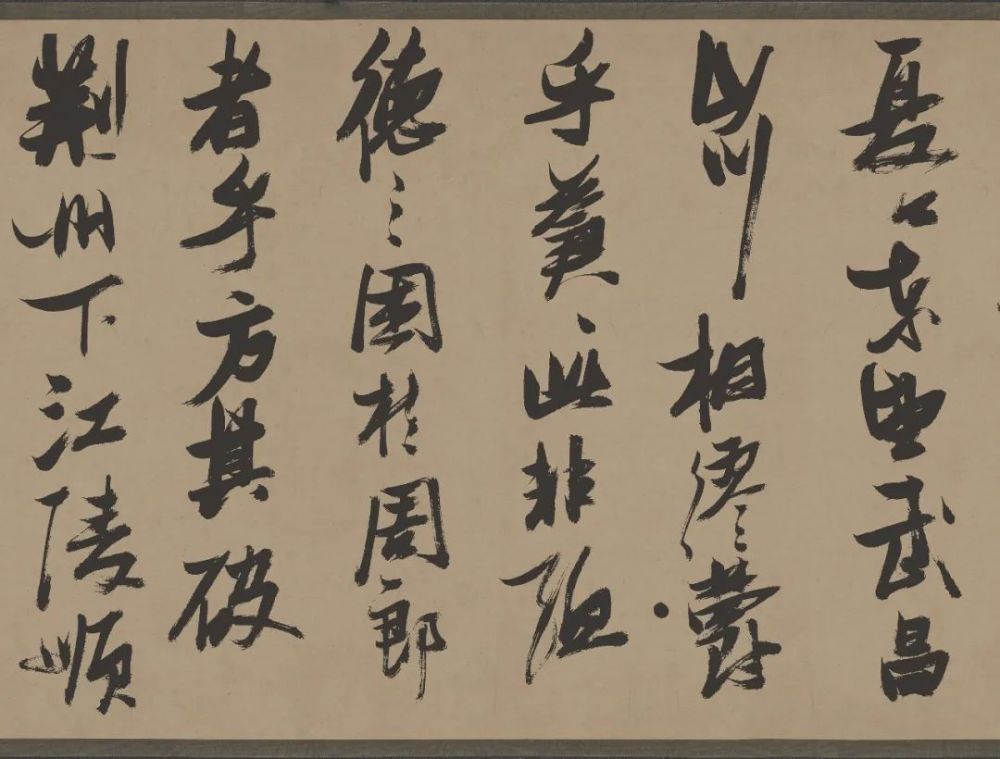 夏口東望武昌
山川相繆鬱
乎蒼々此非孟
德之困於周郎
者乎方其破
荊州下江陵順